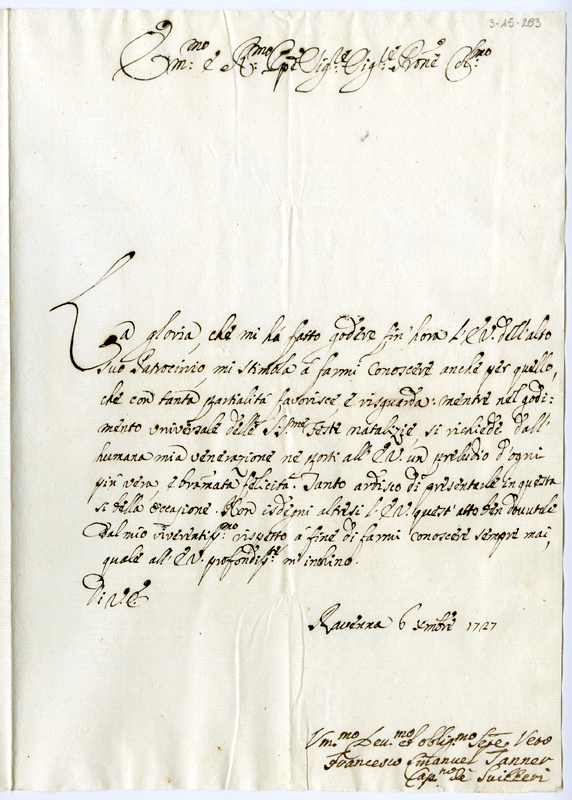 3-15-283
Em:mo e R:mo Pre Sig:re Sig:re Prone Col:mo
La gloria, che mi há fatto godere fin'hora l'E.V. dell'alto
suo Patrocinio, mi stimola á farmi conoscere anche per quello,
che con tanta partialitá favorisce, e risguarda: mentre nel godi-
mento universale delle SS.me Feste natalizie, si richiede dall'
humana mia venerazione ne porti all'E.V. un preludio d'ogni
piú vera e bramata felicitá. Tanto ardisco di presentarle in questa
si bella occasione. Non isdegni altresi l'E.V. quest'atto ben dovutole
dal mio riverentiss:mo rispetto a fine di farmi conoscere sempre mai,
quale all'E.V. profondiss:te m'inchino.
Di V.E.
Ravenna 6 Xmbre 1727
Um:mo Dev:mo et oblig:mo Sere Vero
Francesco Emanuel Tanner
Cap:no de Suizzeri